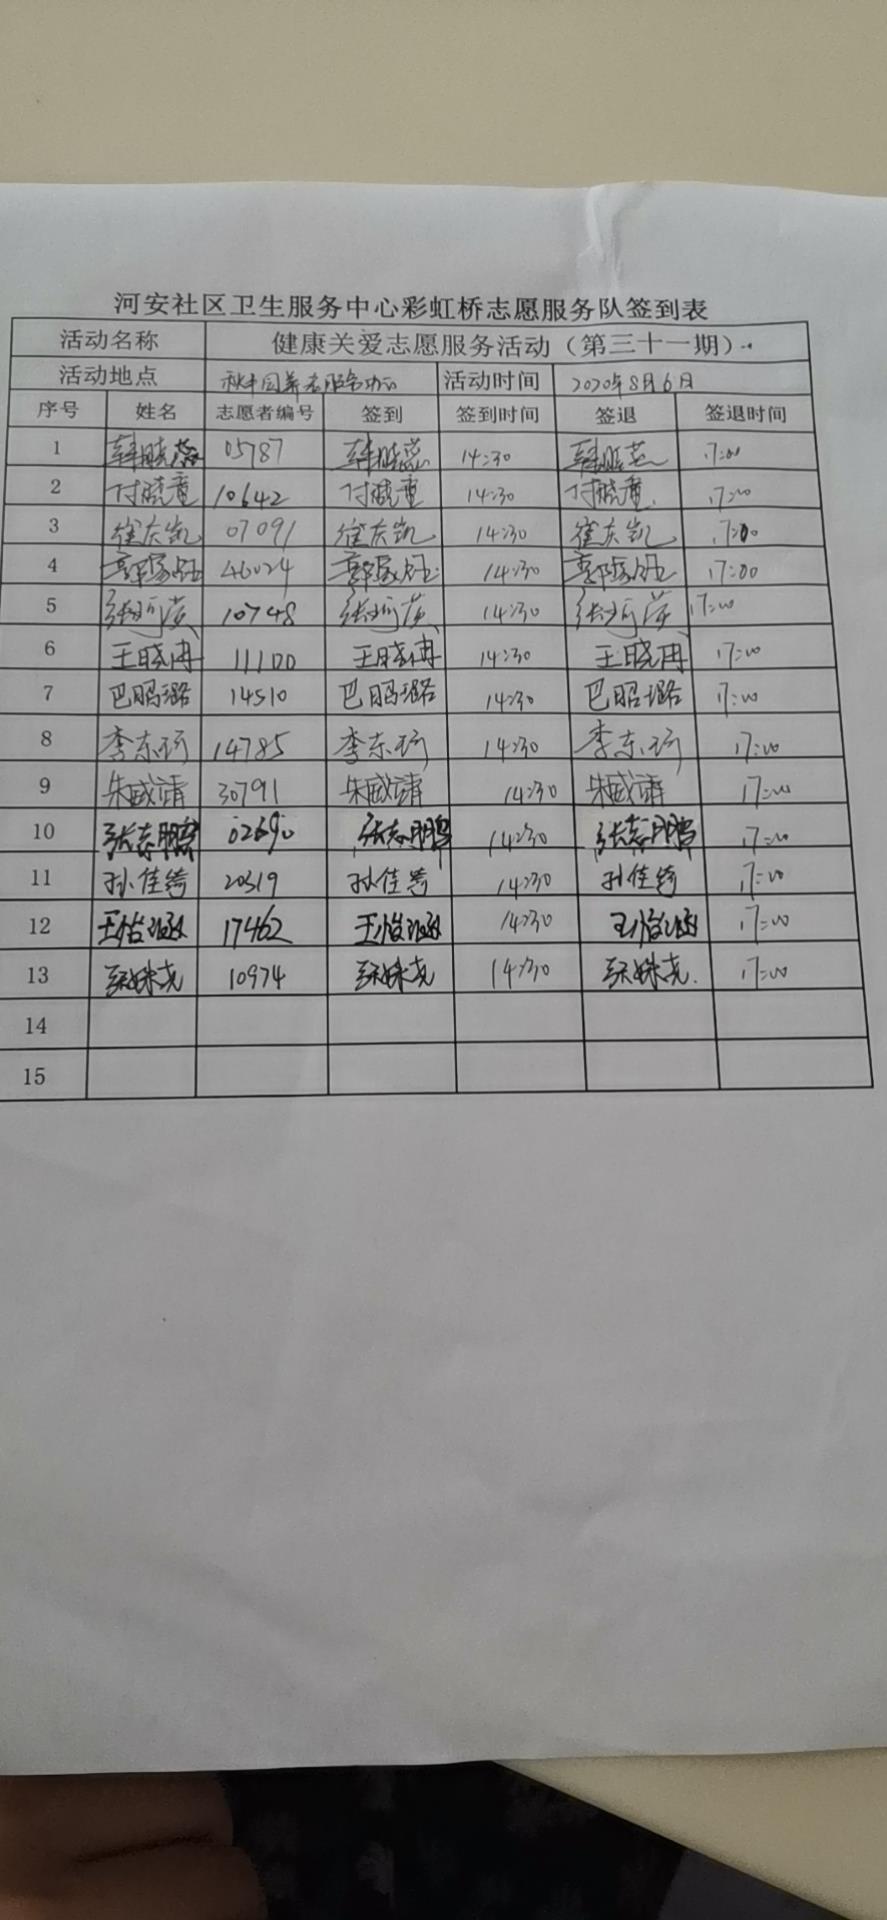 河安社区卫生服务中心彩虹桥志愿服务队签到表
活动名称 健康关爱志愿服务活动（第三十一期）
活动地点 活动时间 2020年8月6日
序号 姓名 志愿者编号 签到 签到时间 签退 签退时间
1 韩晓蕊 05787 韩晓蕊 14:30 韩晓蕊 17:00
2 付晓童 10642 付晓童 14:30 付晓童 17:00
3 崔庆凯 07091 崔庆凯 14:30 崔庆凯 17:00
4 46024 14:30 17:00
5 10748 14:30 17:00
6 王晓冉 11100 王晓冉 14:30 王晓冉 17:00
7 巴昭璐 14510 巴昭璐 14:30 巴昭璐 17:00
8 李东珂 14785 李东珂 14:30 李东珂 17:00
9 朱威靖 30791 朱威靖 14:30 朱威靖 17:00
10 张志鹏 02690 张志鹏 14:30 张志鹏 17:00
11 孙佳绮 20519 孙佳绮 14:30 孙佳绮 17:00
12 王怡涵 17462 王怡涵 14:30 王怡涵 17:00
13 10974 14:30 17:00
14
15